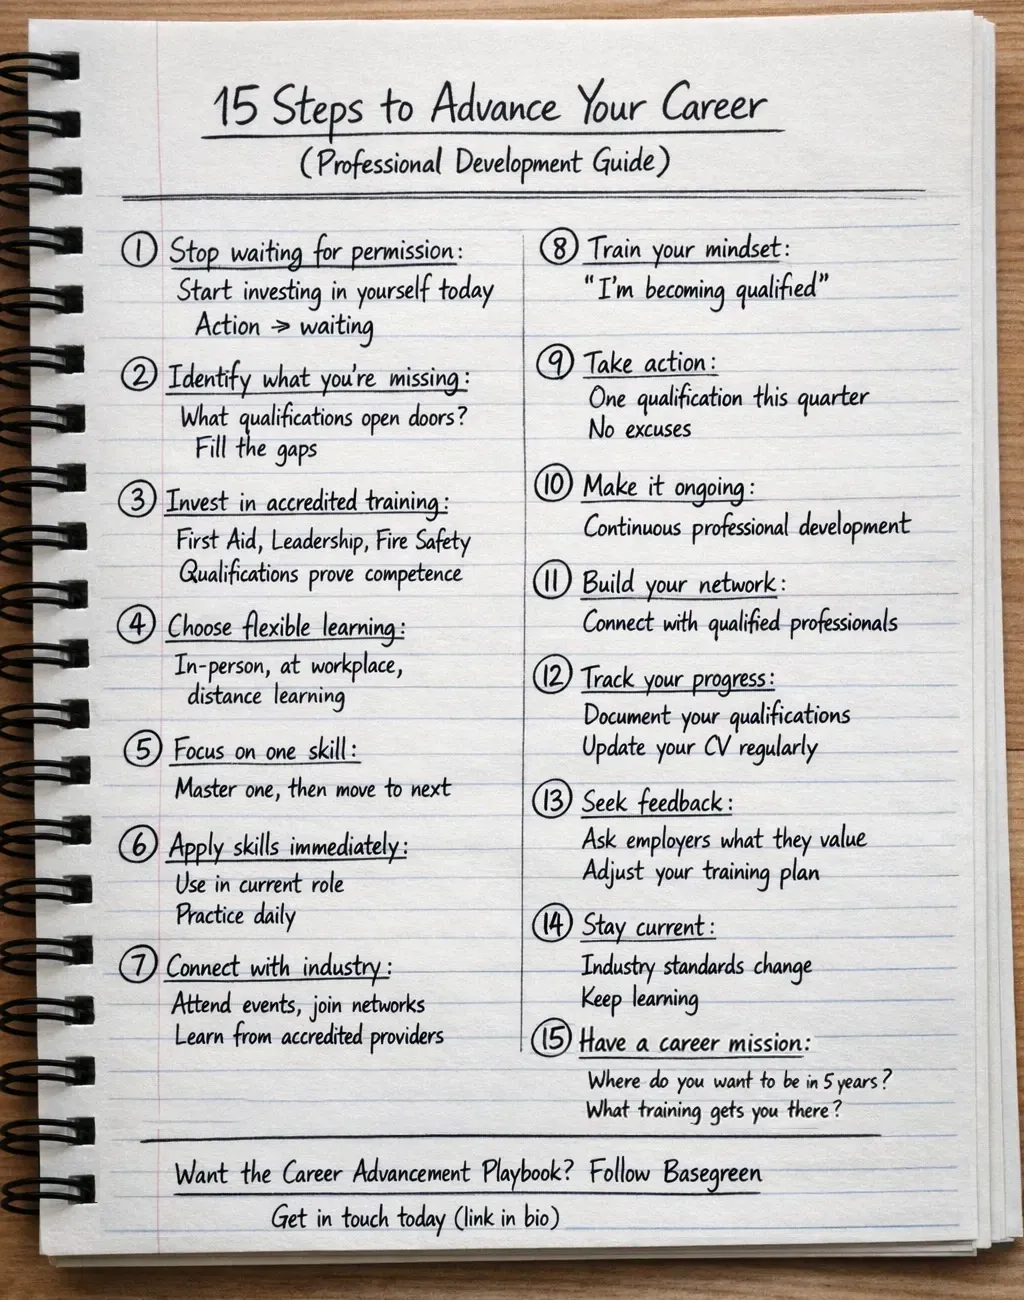 15 Steps to Advance Your Career
(Professional Development Guide)
1 Stop waiting for permission:
Start investing in yourself today
Action → waiting
2 Identify what you're missing:
What qualifications open doors?
Fill the gaps
3 Invest in accredited training:
First Aid, Leadership, Fire Safety
Qualifications prove competence
4 Choose flexible learning:
In-person, at workplace,
distance learning
5 Focus on one skill:
Master one, then move to next
6 Apply skills immediately:
Use in current role
Practice daily
7 Connect with industry:
Attend events, join networks
Learn from accredited providers
8 Train your mindset:
"I'm becoming qualified"
9 Take action:
One qualification this quarter
No excuses
10 Make it ongoing:
Continuous professional development
11 Build your network:
Connect with qualified professionals
12 Track your progress:
Document your qualifications
Update your CV regularly
13 Seek feedback:
Ask employers what they value
Adjust your training plan
14 Stay current:
Industry standards change
Keep learning
15 Have a career mission:
Where do you want to be in 5 years?
What training gets you there?
Want the Career Advancement Playbook? Follow Basegreen
Get in touch today (link in bio)